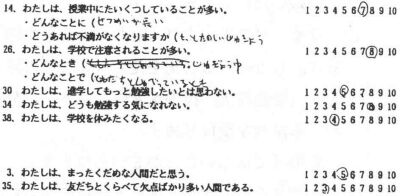 14. わたしは、授業中にたいくつしていることが多い。 1 2 3 4 5 6 7 8 9 10
・どんなことに(せつめいが長い
・どうあれば不満がなくなりますか(もっとたのしいじゅぎょう
26. わたしは、学校で注意されることが多い。 1 2 3 4 5 6 7 8 9 10
・どんなとき( じゅぎょう中
・どんなことで(ともだちとしゃべっているとき
30 わたしは、進学してもっと勉強したいとは思わない。 1 2 3 4 5 6 7 8 9 10
34. わたしは、どうも勉強する気になれない。 1 2 3 4 5 6 7 8 9 10
38. わたしは、学校を休みたくなる。 1 2 3 4 5 6 7 8 9 10
3. わたしは、まったくだめな人間だと思う。 1 2 3 4 5 6 7 8 9 10
35. わたしは、友だちとくらべて欠点ばかり多い人間である。 1 2 3 4 5 6 7 8 9 10